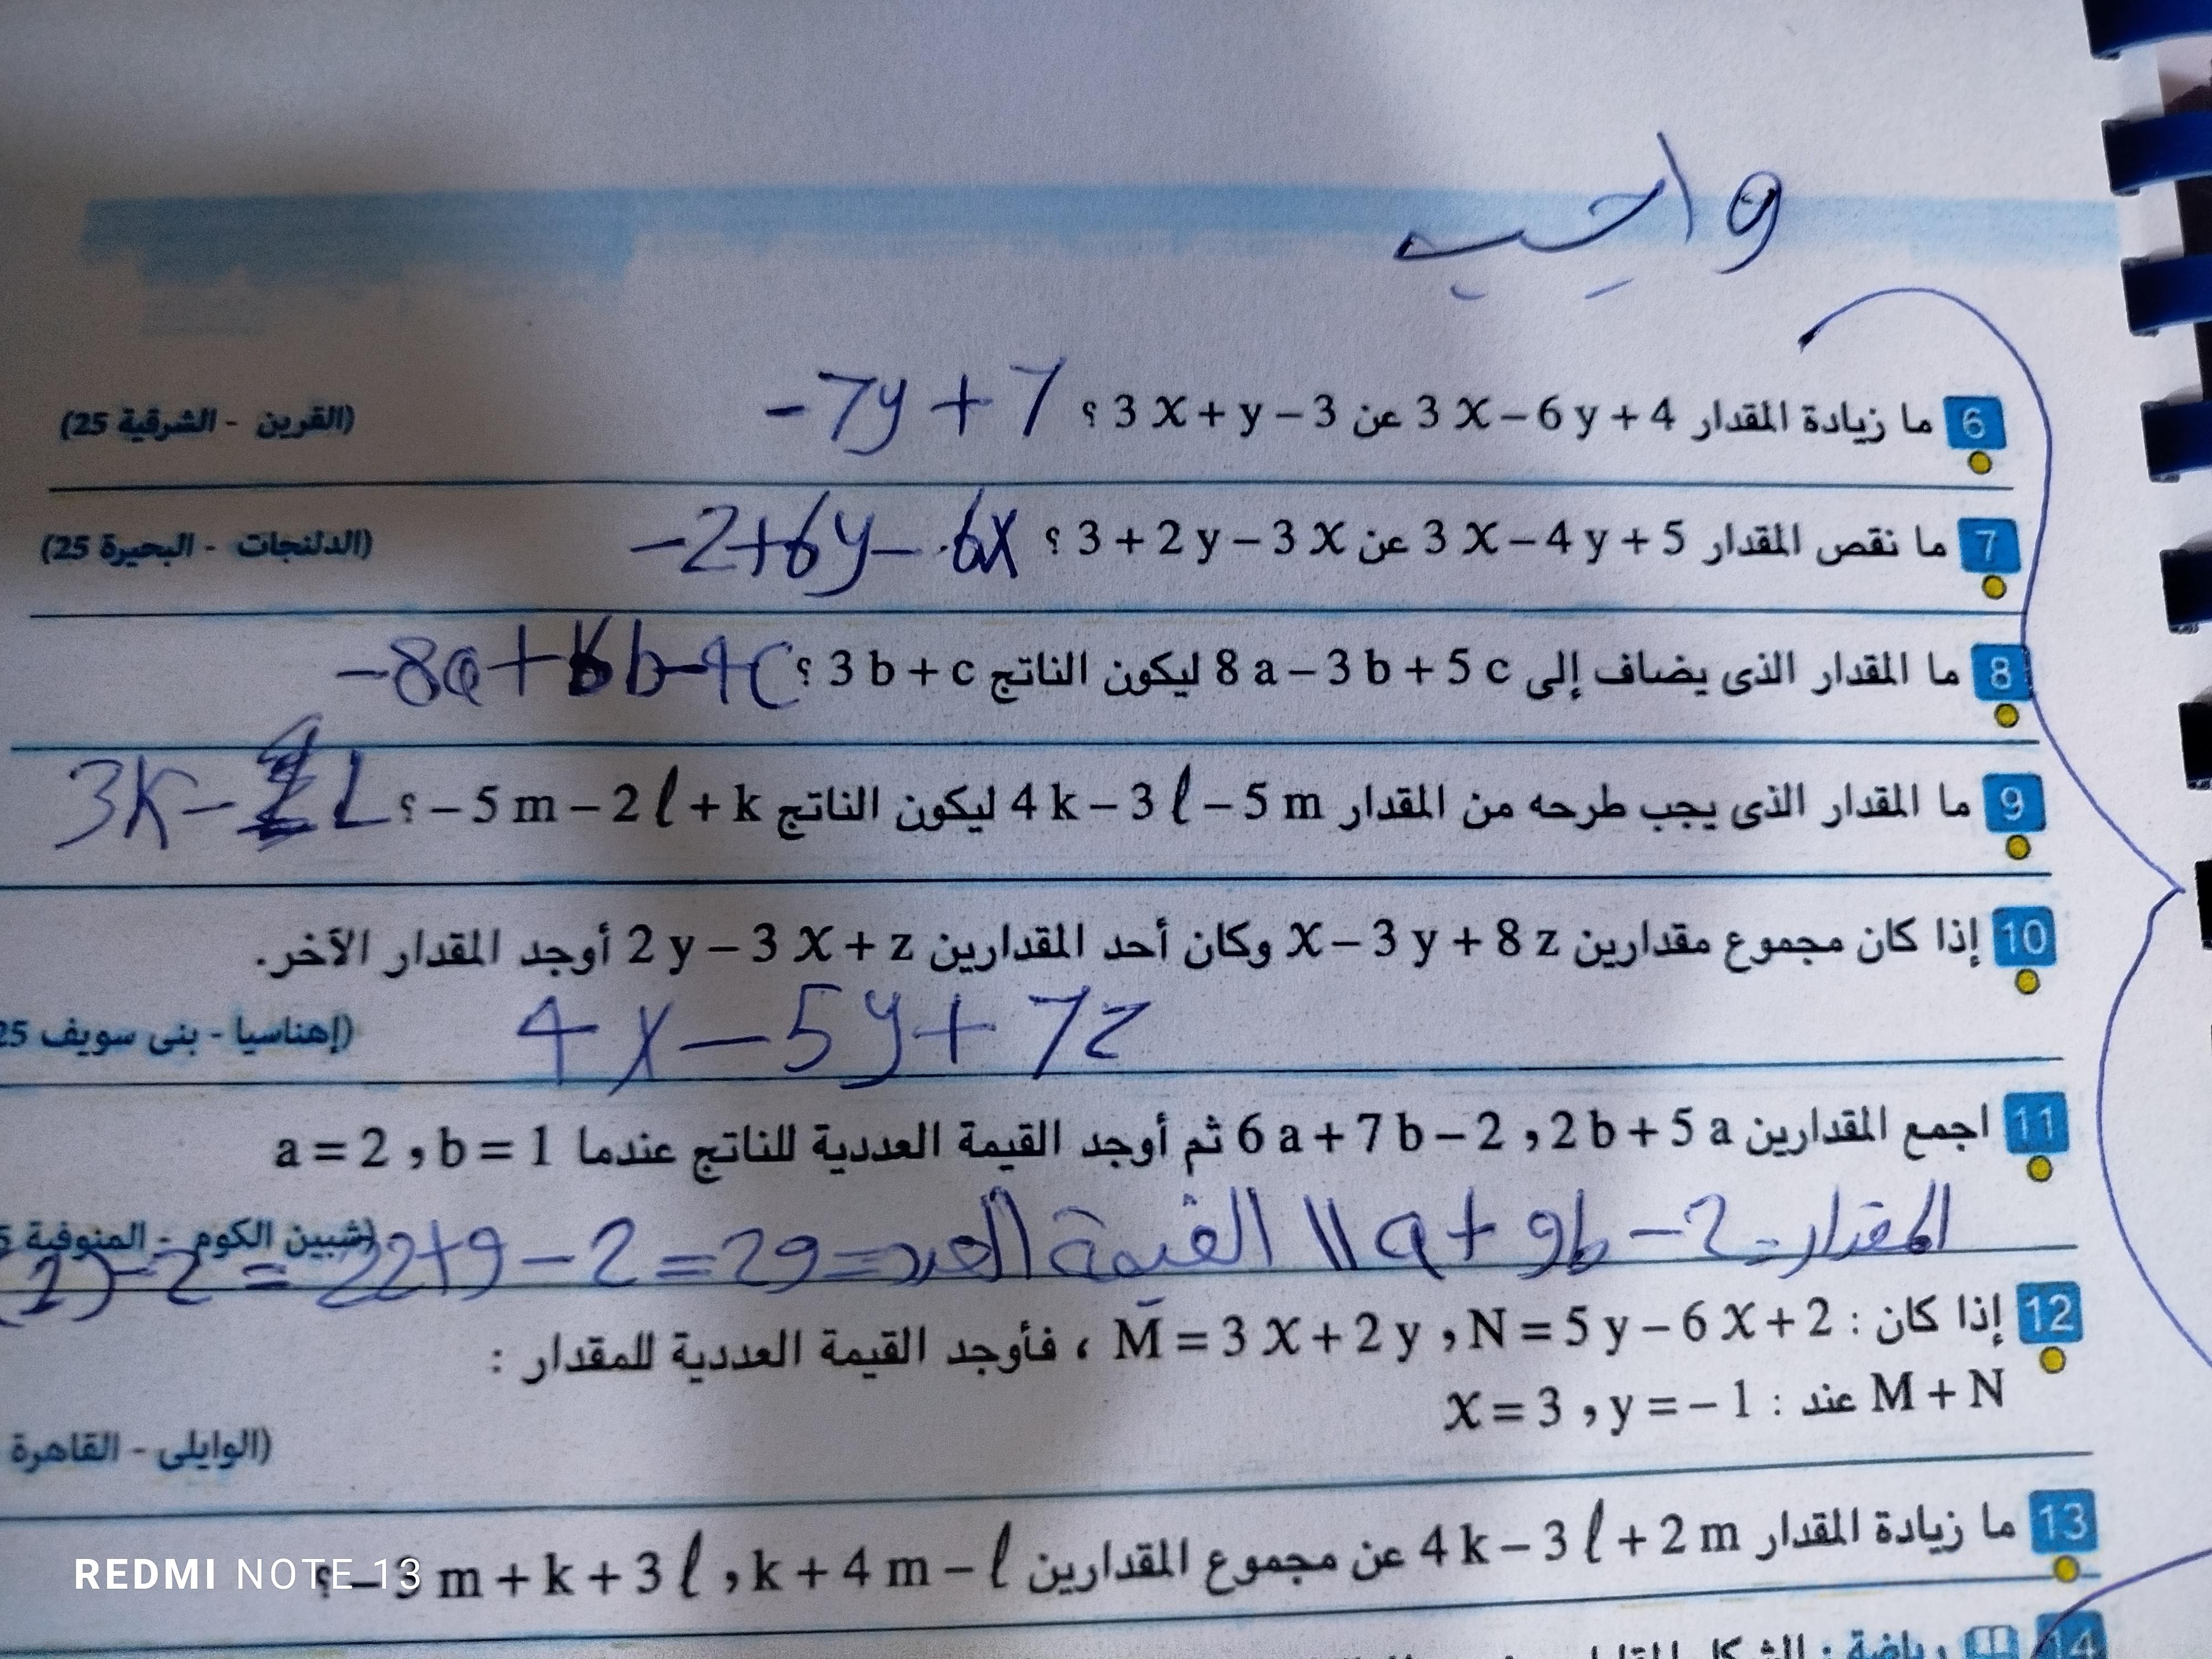 واجب
6 ما زيادة المقدار 3 x – 6 y + 4 عن 3 x + y – 3 ؟ -7y + 7 (القرين - الشرقية 25)
7 ما نقص المقدار 3 x – 4 y + 5 عن 3 + 2 y – 3 x ؟ -2+6y-6x (الدلنجات - البحيرة 25)
8 ما المقدار الذى يضاف إلى 8 a – 3 b + 5 c ليكون الناتج 3 b + c ؟ -8a+6b-4c
9 ما المقدار الذى يجب طرحه من المقدار 4 k – 3 ℓ – 5 m ليكون الناتج – 5 m – 2 ℓ + k ؟ 3k- L
10 إذا كان مجموع مقدارين x – 3 y + 8 z وكان أحد المقدارين 2 y – 3 x + z أوجد المقدار الآخر.
4x-5y+7z (إهناسيا - بنى سويف 25
11 اجمع المقدارين 6 a + 7 b – 2 ، 2 b + 5 a ثم أوجد القيمة العددية للناتج عندما a = 2 ، b = 1
(شبين الكوم - المنوفية
المقدار= 11a+9b-2 القيمة العد=29=22+9-2 = 2)-2
12 إذا كان : M = 3 x + 2 y ، N = 5 y – 6 x + 2 ، فأوجد القيمة العددية للمقدار :
M + N عند : x = 3 ، y = – 1
(الوايلى - القاهرة
13 ما زيادة المقدار 4 k – 3 ℓ + 2 m عن مجموع المقدارين k + 4 m – ℓ ، – 3 m + k + 3 ℓ ؟
REDMI NOTE 13
14 رياضة : الشكل